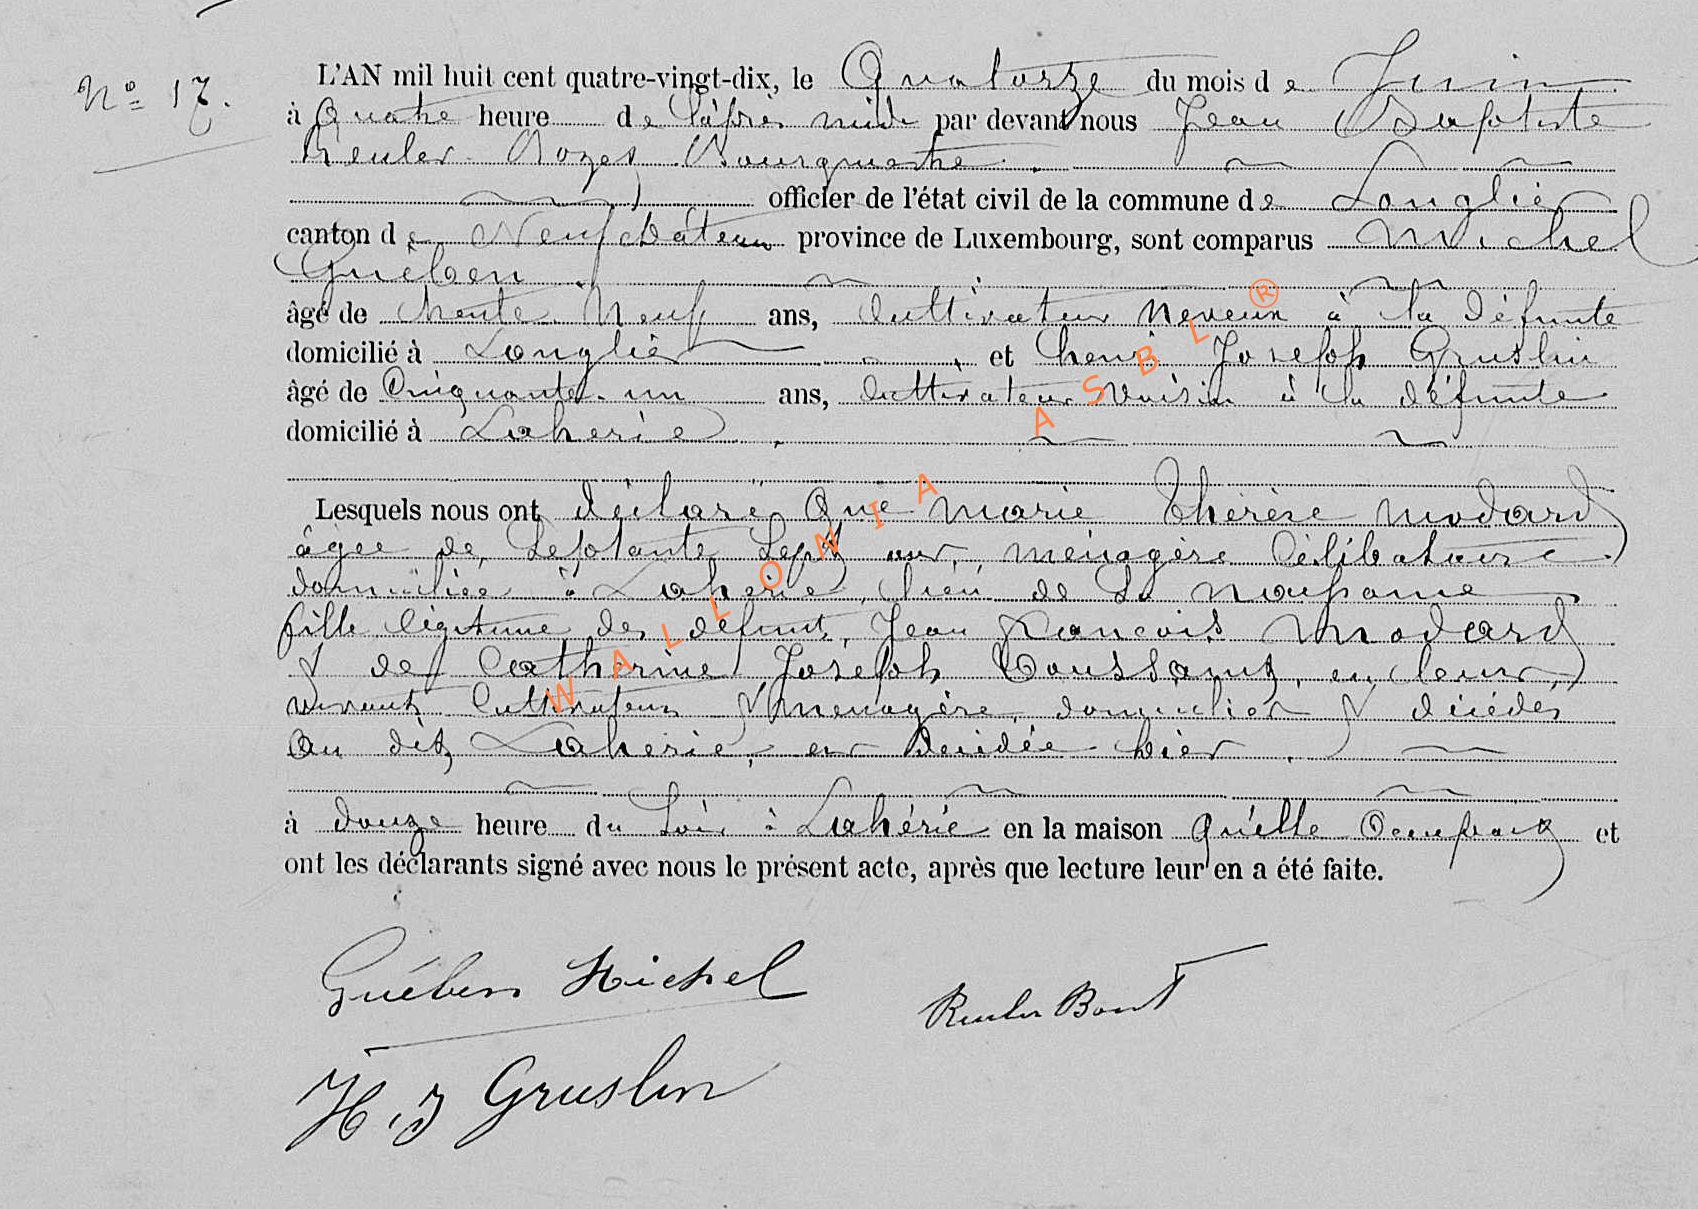 N° 17.
L'AN mil huit cent quatre-vingt-dix, le Quatorze du mois de Juin
à Quatre heure de l'après midi par devant nous Jean Baptiste
Reuler Rozet Bourgmestre.
officier de l'état civil de la commune de Longlier
canton de Neufchâteau province de Luxembourg, sont comparus Michel
Guében
âgé de trente Neuf ans, Cultivateur Neveux à la défunte
domicilié à Longlier et henri Joseph Gruslin
âgé de Cinquante un ans, Cultivateur Voisin à la défunte
domicilié à Laherie
Lesquels nous ont déclaré Que Marie Thérèse Modard
âgée de Septante Sept ans, ménagère Célibataire
domiciliée à Laherie, lieu de Sa naissance
fille légitime des défunts, Jean François Modard
& de Catherine Joseph Toussaint, en leur
vivants Cultivateurs & menagère, domicilier & décédés
au dit Laherie, est décidée hier.
à douze heure du Soir à Lahérie en la maison qu'elle Occupait et
ont les déclarants signé avec nous le présent acte, après que lecture leur en a été faite.
Guében Michel
Reuler Bapt
H. J Gruslin
WALLONIA ASBL ®